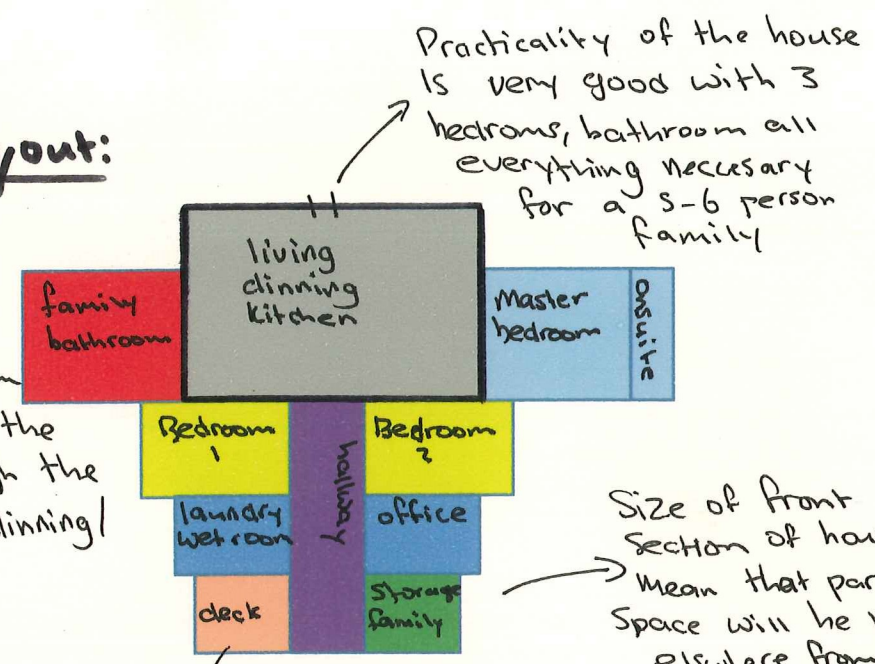 Practicality of the house
Is very good with 3
bedroms, bathroom all
everything neccesary
for a 5-6 person
family
out:
living
dinning
kitchen
family
bathroom
Master
bedroom
onsuite
the
the
dinning/
Bedroom
1
hallway
Bedroom
2
laundry
wetroom
office
deck
Storage
family
Size of front
Section of
mean that
Space will be